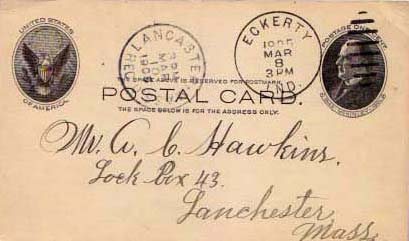 UNITED STATES
OF AMERICA
LANCASTE
3 PM
MAR
1905
REC'D
ECKERTY
1905
MAR
8
3PM
IND.
POSTAGE ONE CENT
SPACE ABOVE IS RESERVED FOR POSTMARK.
POSTAL CARD.
THE SPACE BELOW IS FOR THE ADDRESS ONLY.
Mr. A. C. Hawkins.
Lock Box 43.
Lanchester,
Mass.